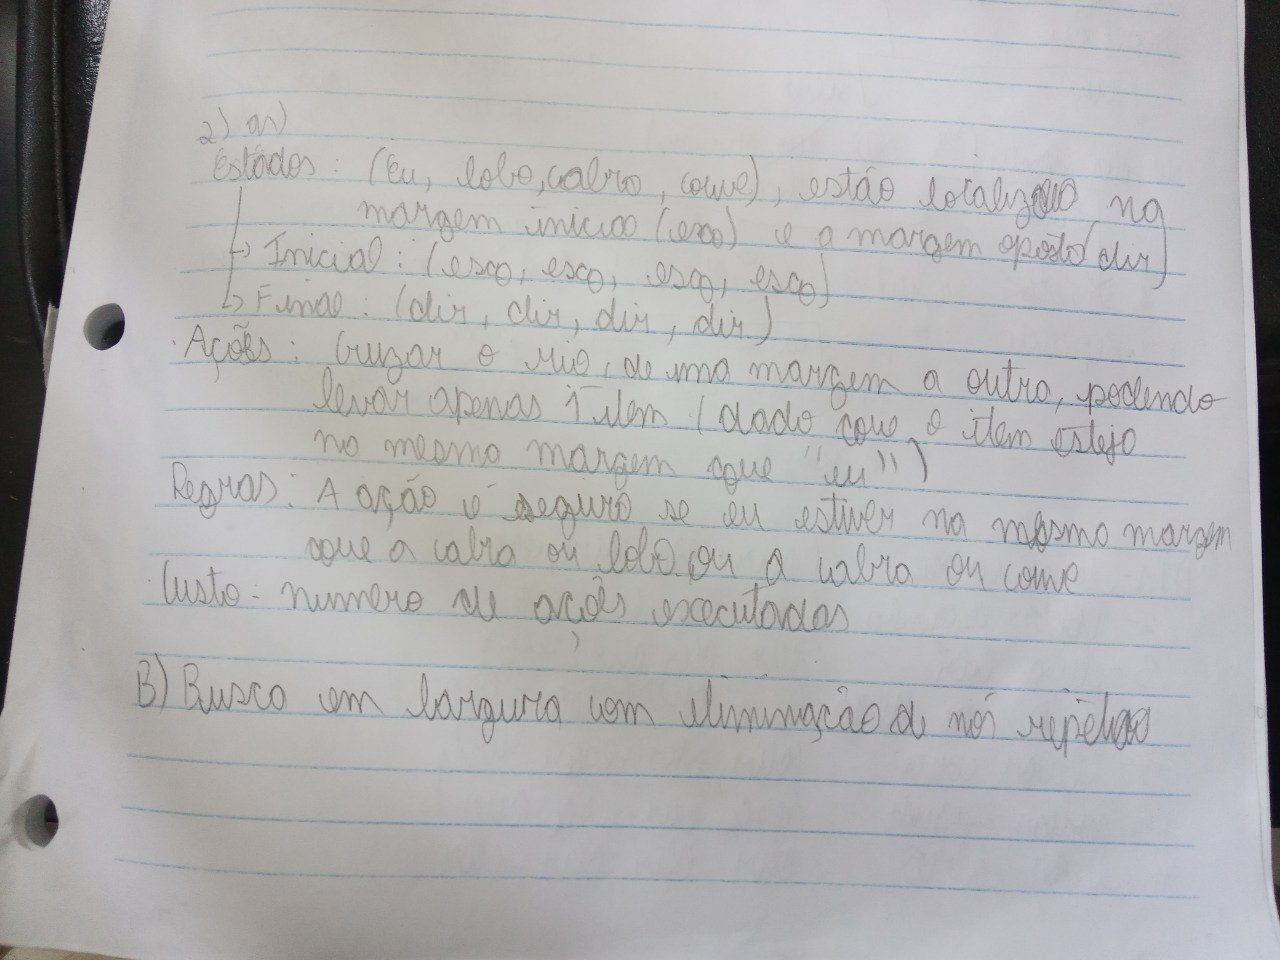 2) a)
Estados: (Eu, lobo, cabra, couve), estão localizado na
margem inicial (esq) e a margem oposta (dir)
↳ Inicial: (esq, esq, esq, esq)
↳ Final: (dir, dir, dir, dir)
· Ações: Cruzar o rio, de uma margem a outra, podendo
levar apenas 1 item (dado que o item esteja
na mesma margem que "eu")
Regras: A ação é segura se eu estiver na mesma margem
que a cabra ou lobo ou a cabra ou couve
· Custo - numero de ações executadas
B) Busca em largura com eliminação de nós repetidos